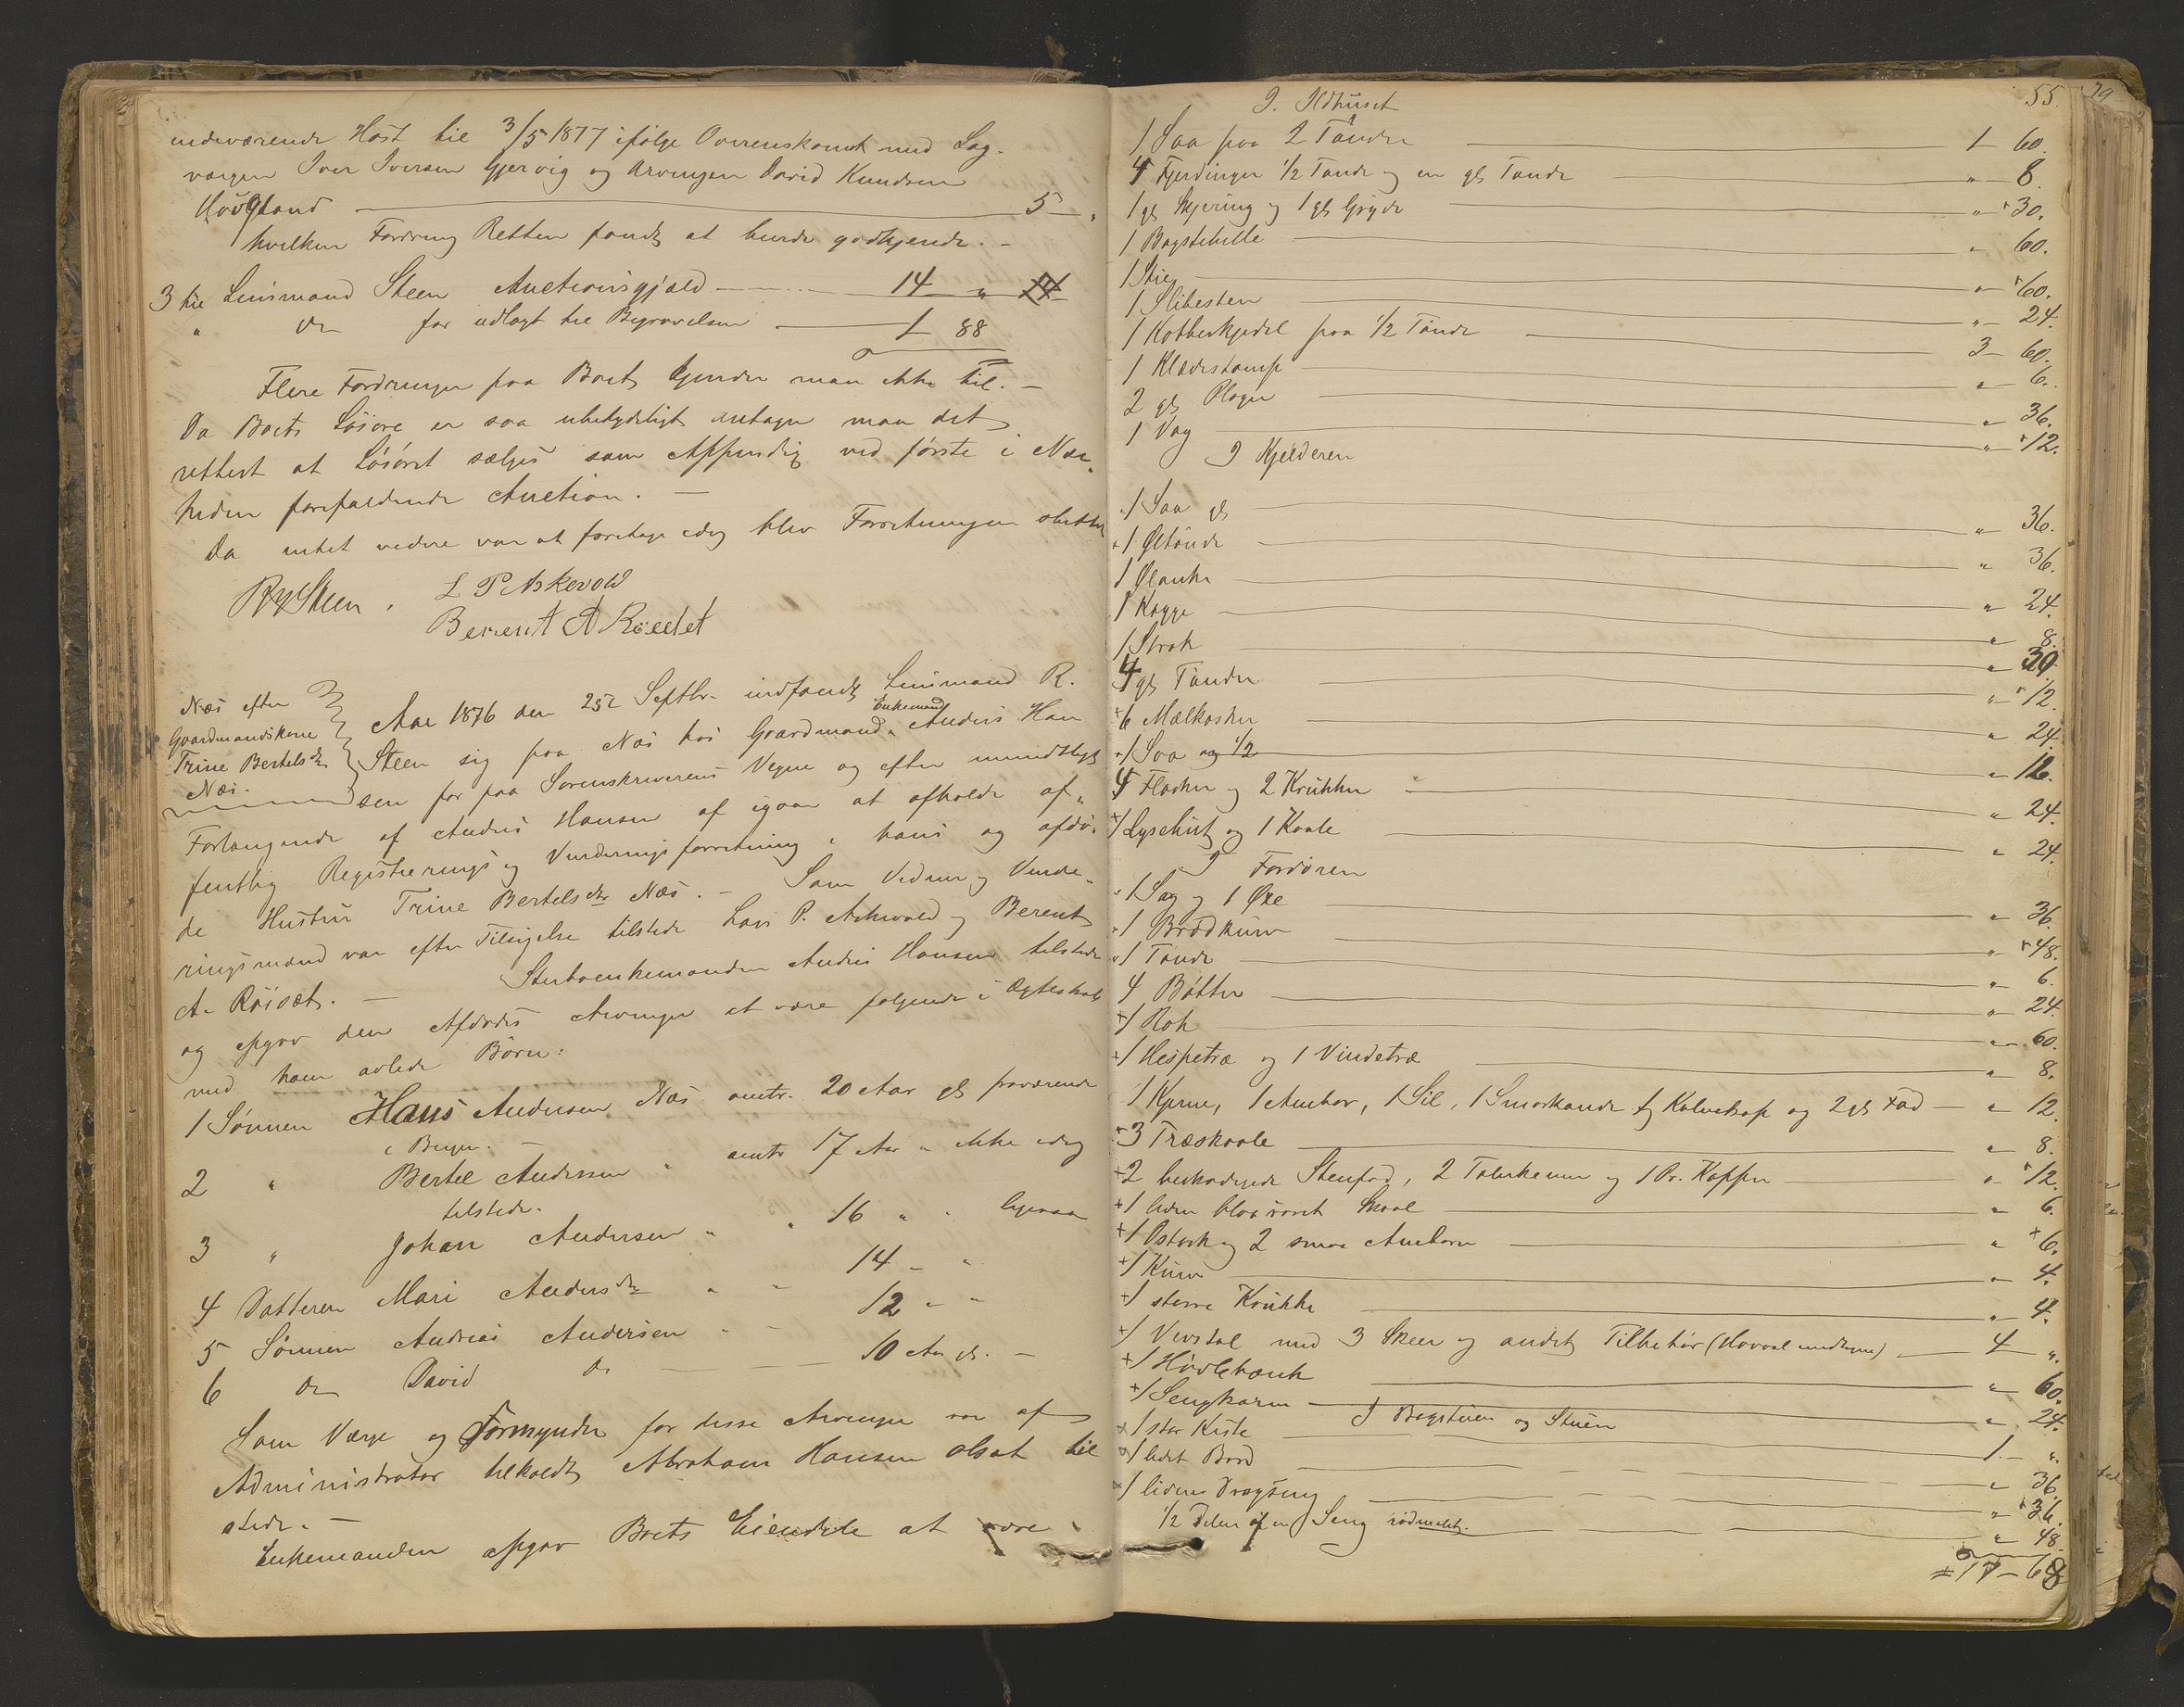 indeværende Høst til 3/5 1877 ifølge Overenskomst med Lag-
værgen Iver Iversen Gjervig og Arvingen David Knudsen
Hovland 5 "
hvilken Fordring Retten fandt at burde godkjende. -
3 til Lensmand Steen Auctionsgjæld 14 "
" Do for udlagt til Begravelsen 1 88
Flere Fordringer paa Boet kjender man ikke til. -
Da Boets Løsøre er saa ubetydeligt antager man det
rettest at Løsøret sælges som Appendix ved første i Nær-
heden forefaldende Auction. -
Da intet videre var at foretage idag blev Forretningen sluttet
Steen. L P Askevold
Berent A Röiset
Næs efter
Gaardmandskone
Trine Bertelsdr
Næs.
Aar 1876 den 25 Septbr. indfandt Lensmand R.
Steen sig paa Næs hos Gaardmand Enkemand Anders Han
sen for paa Sorenskriverens Vegne og efter mundtligt
Forlangende af Anders Hansen af igaar at afholde of-
fentlig Registrerings og Vurderingsforretning i hans og afdø-
de Hustru Trine Bertelsdr Næs. - Som Vidner og Vurde-
ringsmænd var efter Tilsigelse tilstede Lars P. Askevold og Berent
A. Röiset. - Sterboenkemanden Anders Hansen tilstede
og opgav den Afdødes Arvinger at være følgende i Ægteskab
med ham avlede Børn:
1 Sønnen Hans Andersen Næs omtr. 20 Aar gl fraværende
i Bergen. -
2 " Bertel Andersen " omtr 17 Aar " ikke idag
tilstede.
3 " Johan Andersen " " 16 " " ligesaa
4 Datteren Mari Andersdr " " 14 " "
5 Sønnen Andreas Andersen " " 12 " "
6 Do David Do 10 Aar gl. -
Som Værge og Formynder for disse Arvinger var af
Administrator tilkaldt Abraham Hansen til
stede. -
Enkemanden opgav Boets Eiendele at være
I. Ildhuset 55.
1 Saa paa 2 Tønder 1 60.
4 Fjerdinger 1/2 Tønde og en gl Tønde " 8.
1 gl Kjering og 1 gl Gryde " 30.
1 Bagstehelle " 60.
1 Stie " 60.
1 Slibesten " 24.
1 Kobberkjedel paa 1/2 Tønde 3 60.
1 Klædestamp " 6.
2 gl Ploger " 36.
1 Vog " 12.
I Kjelderen
1 Saa gl " 36.
1 Øltønde " 36.
1 Ølanker " 24.
1 Kagge " 8.
1 Strok " 30
4 gl Tønder " 12.
6 Mælkosker " 24.
1 Saa 1/2 " 12.
4 Flasker og 2 Krukker " 24.
1 Lysekist og 1 Kaale " 24.
I Fordøren
1 Sag og 1 Øxe " 36.
1 Brødkurv " 48.
1 Tønde " 6.
4 Bøtter " 24.
1 Rok " 60.
1 Hespetræ og 1 Vindetræ " 8.
1 Kjerne, 1 Ambar, 1 Sil, 1 Smørkande og 2 gl Fad " 12.
3 Træskaale " 8.
2 beskadigede Stenfad, 2 Talerkener og 1 Pr. Kopper " 12.
1 liden blaa Skaal " 6.
1 Ostask og 2 smaa Ambarer " 6.
1 Kurv " 4.
1 større Krukke " 4.
1 Vevstol med 3 Skeer og andet Tilbehør 4 ".
1 Høvlebænk " 60.
1 Sengkarm " 24.
I Bagstuen og Stuen
1 stor Kiste 1 - ".
1 lidet Bord " 36.
1 liden Dragseng " 36.
1/2 Delen af en Seng rødmalet. " 48.
17 - 68